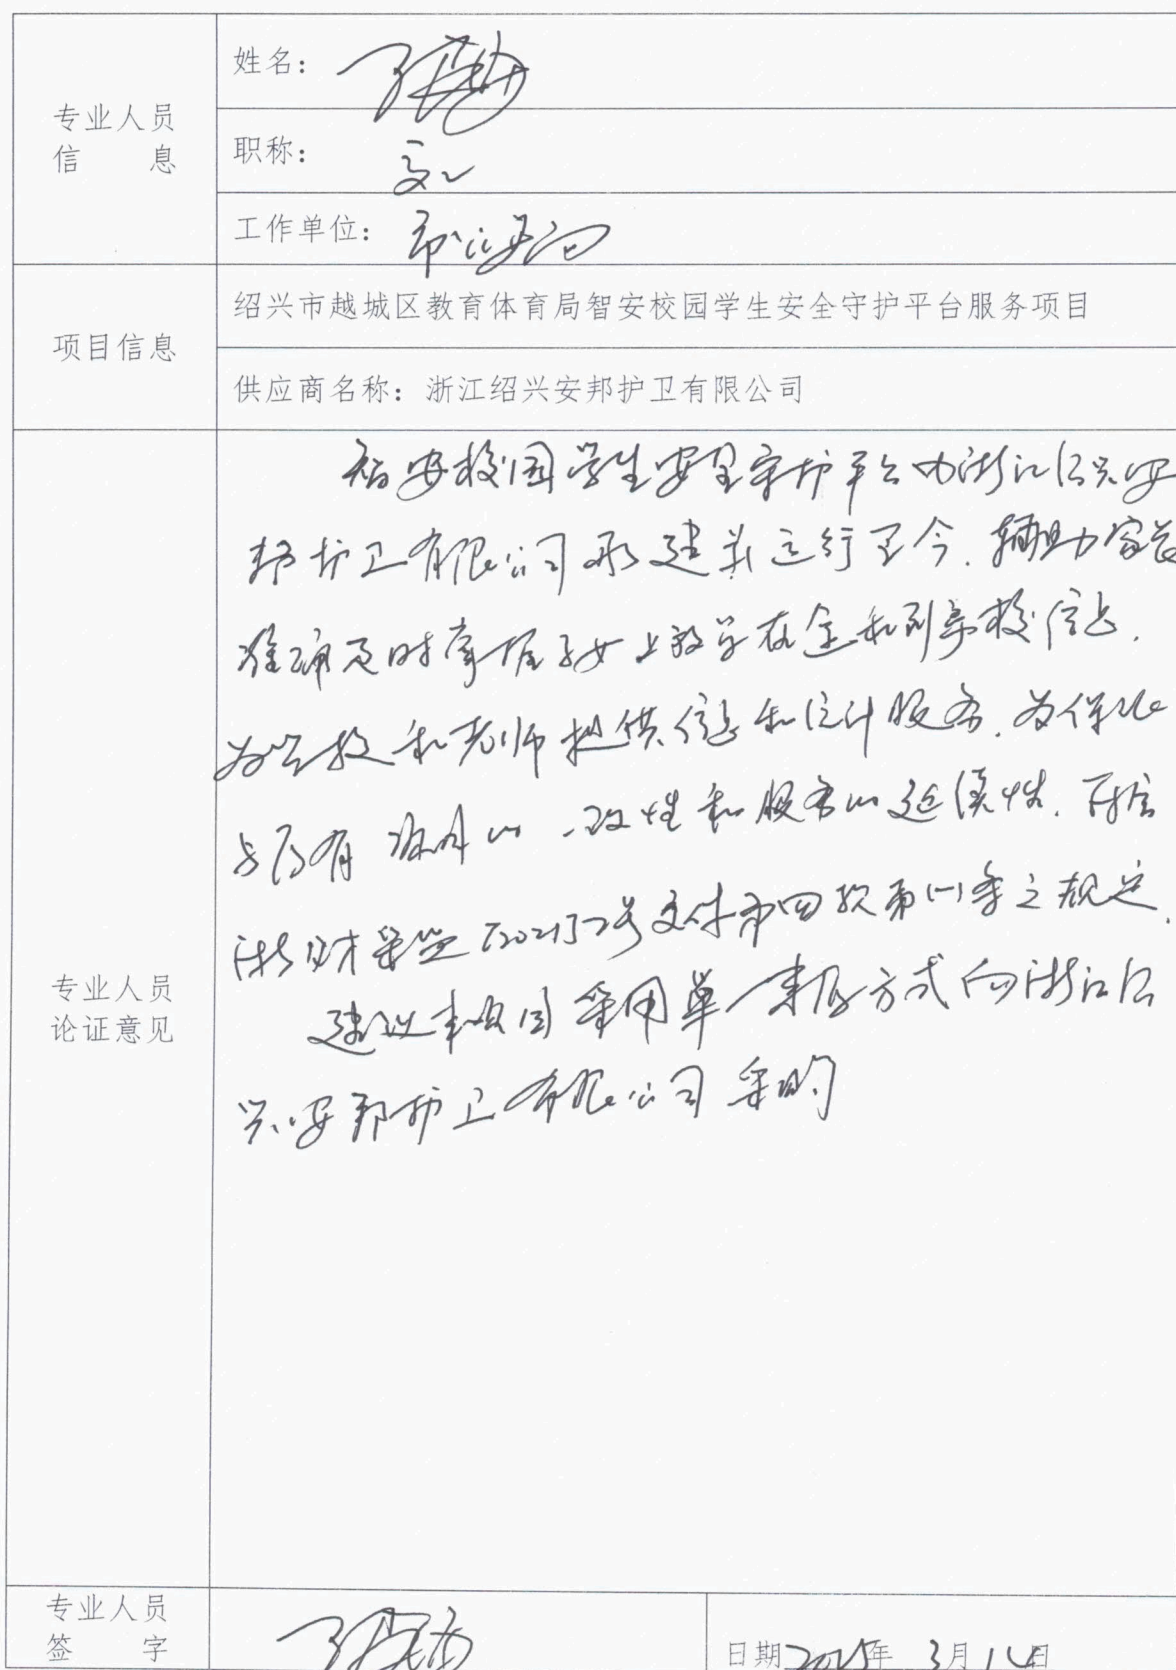 专业人员
信 息
姓名：
职称：高工
工作单位：
项目信息
绍兴市越城区教育体育局智安校园学生安全守护平台服务项目
供应商名称：浙江绍兴安邦护卫有限公司
专业人员
论证意见
智安校园学生安全守护平台由浙江绍兴安
邦护卫有限公司承建并运行至今，辅助家长
准确及时掌握子女上放学在途和到离校信息，
为学校和老师提供信息和统计服务，为保证
与原有项目的一致性和服务的延续性，符合
浙财采监〔2021〕2号文件第四款第(一)条之规定，
建议本项目采用单一来源方式向浙江绍
兴安邦护卫有限公司采购
专业人员
签 字
日期2025年 3月 日